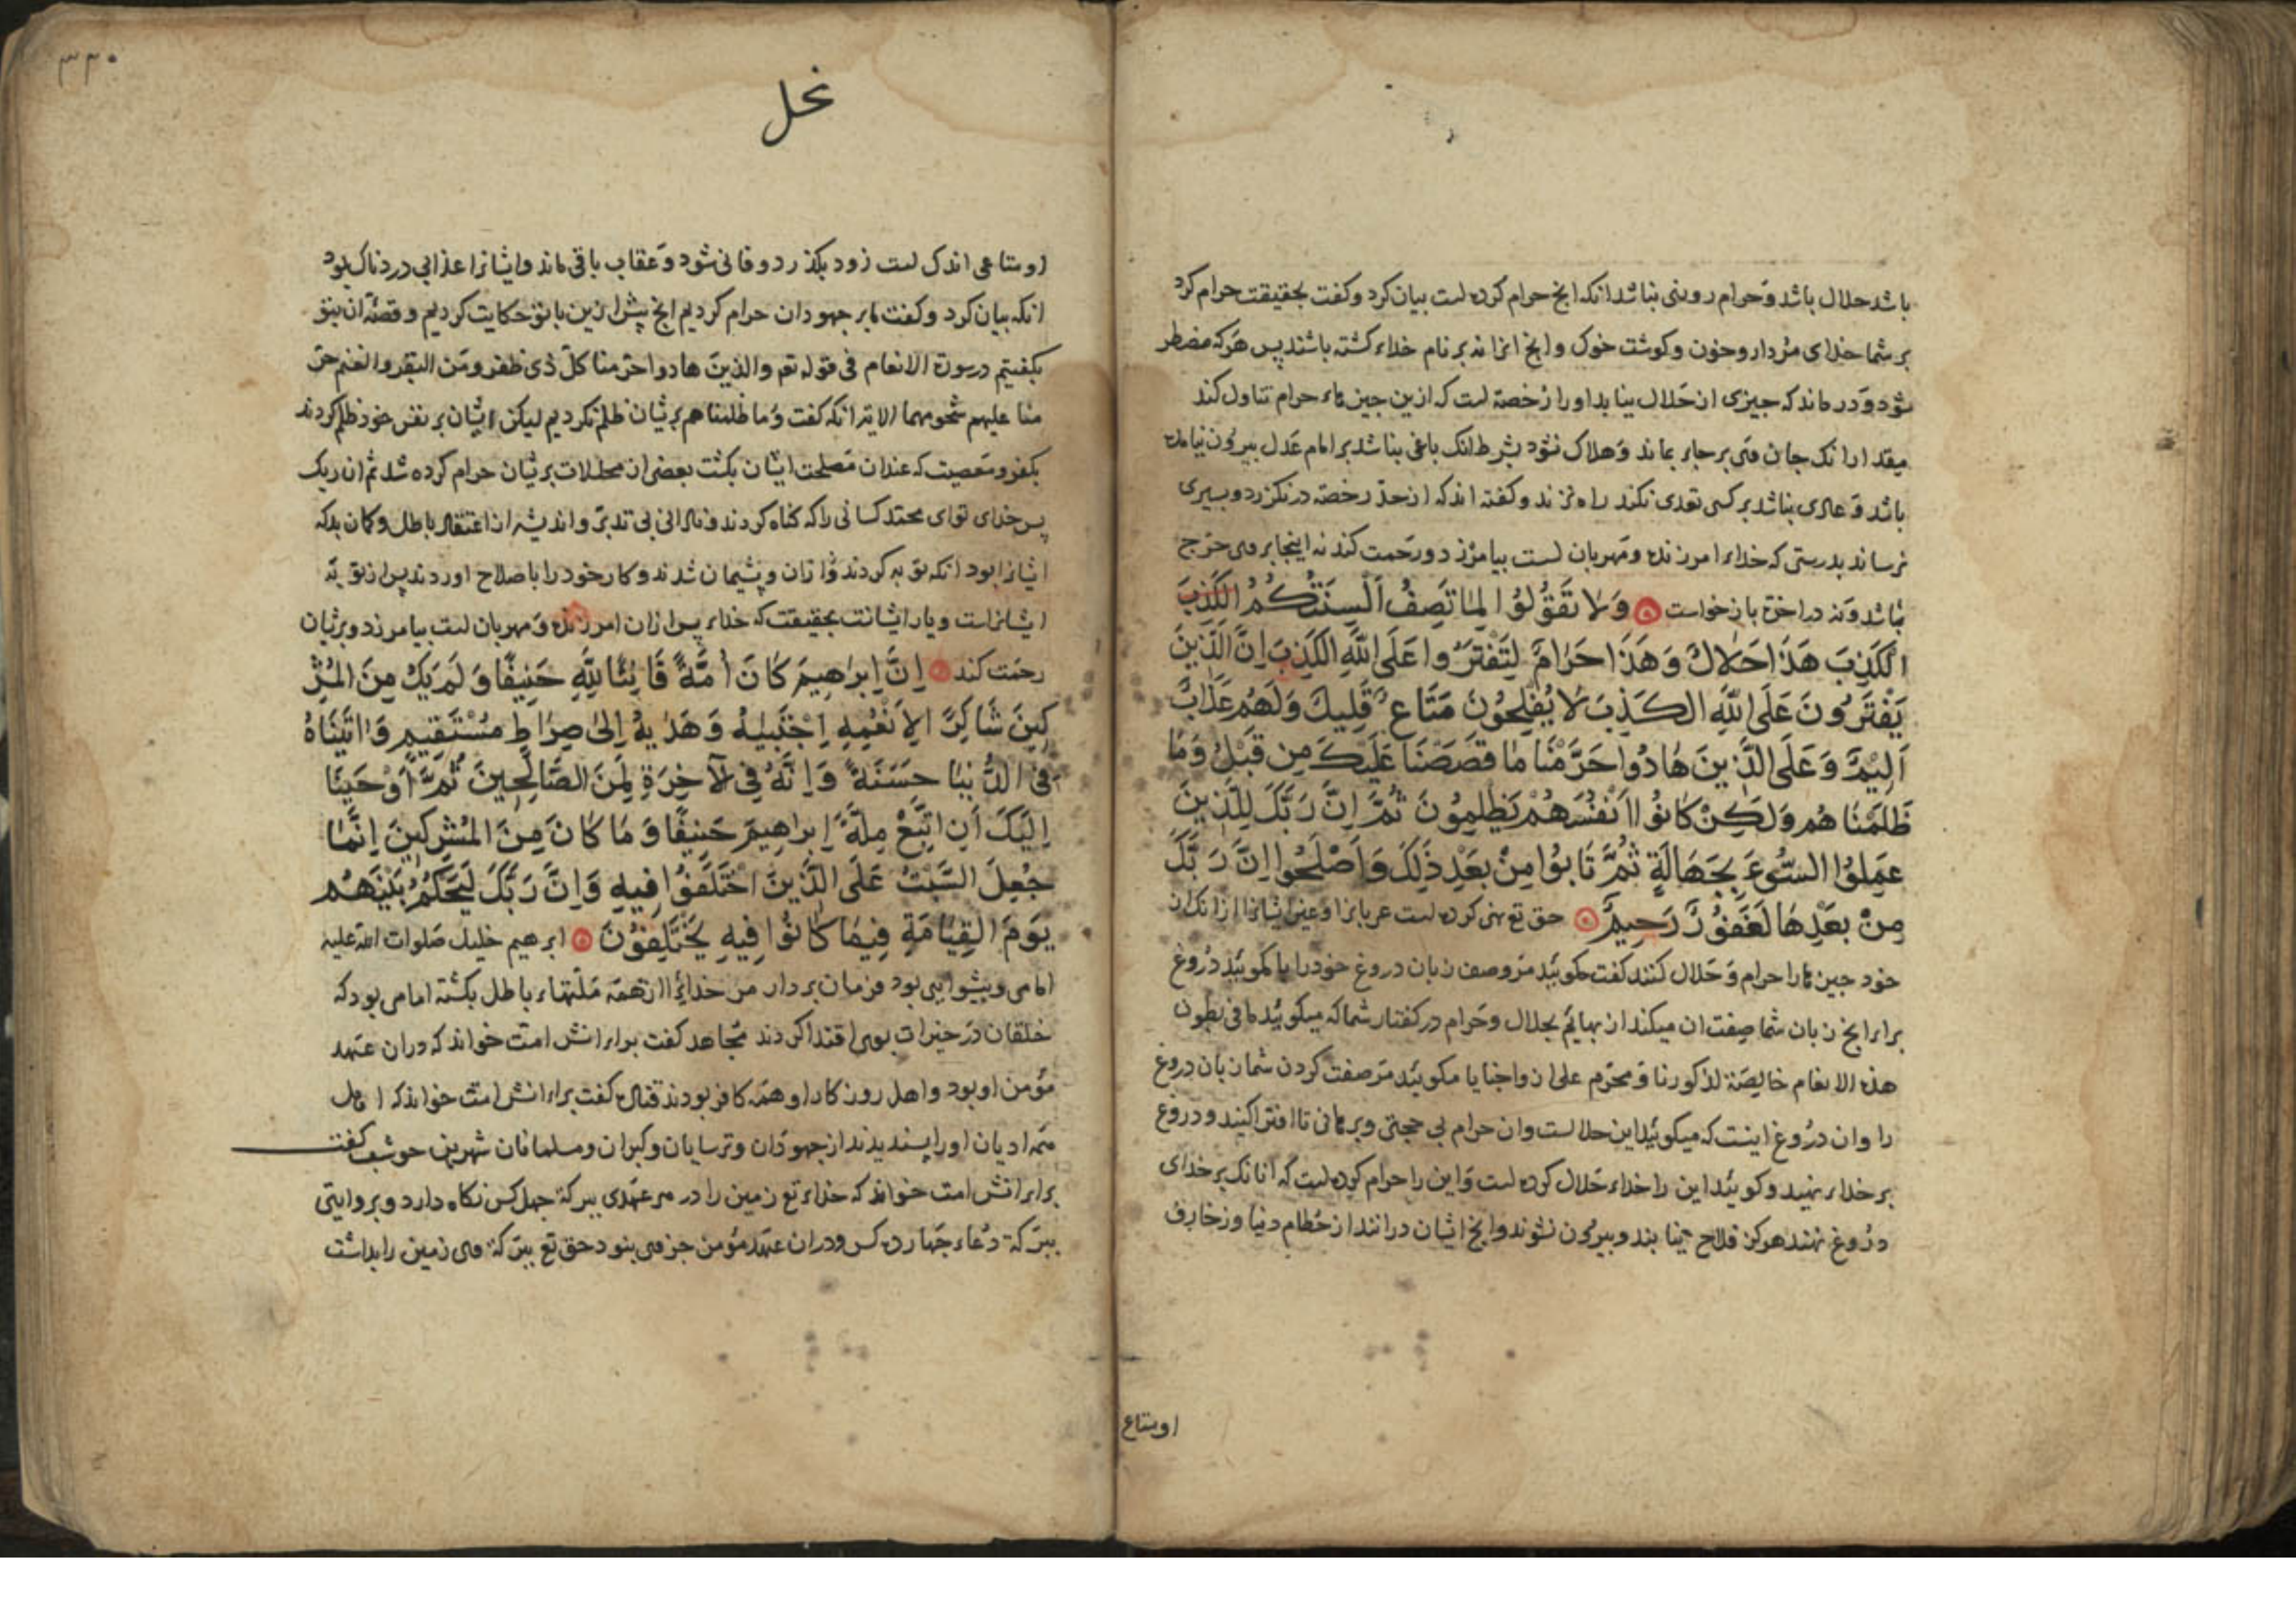 باشد حلال باشد و حرام روبنی نباشد انکه انچ حرام کرده است بیان کرد و کفت بحقیقت حرام کرد
بر شما خدای مردار و خون و کوشت خوک و انچ انرا نه بر نام خداء کشته باشند پس هرکه مضطر
شود و در ماند که چیزی از حلال نیابد او را رخصة است که ازین چیزهاء حرام تناول کند
مقدار انک جان وی بر جای بماند و هلاک نشود بشرط انک باغی نباشد بر امام عدل بیرون نیامده
باشد و عادی نباشد بر کسی تعدی نکند راه نزند و کفته اند که از حد رخصة در نکزرد و بسیری
نرساند بدرستی که خداء امرزنده و مهربان است بیامرزد و رحمت کند نه اینجا بر وی حرج
باشد و نه در اخرة بازخواست وَلَا تَقُولُوا لِمَا تَصِفُ أَلْسِنَتُكُمُ الْكَذِبَ
الْكَذِبَ هَذَا حَلَالٌ وَهَذَا حَرَامٌ لِتَفْتَرُوا عَلَى اللَّهِ الْكَذِبَ إِنَّ الَّذِينَ
يَفْتَرُونَ عَلَى اللَّهِ الْكَذِبَ لَا يُفْلِحُونَ مَتَاعٌ قَلِيلٌ وَلَهُمْ عَذَابٌ
أَلِيمٌ وَعَلَى الَّذِينَ هَادُوا حَرَّمْنَا مَا قَصَصْنَا عَلَيْكَ مِنْ قَبْلُ وَمَا
ظَلَمْنَاهُمْ وَلَكِنْ كَانُوا أَنْفُسَهُمْ يَظْلِمُونَ ثُمَّ إِنَّ رَبَّكَ لِلَّذِينَ
عَمِلُوا السُّوءَ بِجَهَالَةٍ ثُمَّ تَابُوا مِنْ بَعْدِ ذَلِكَ وَأَصْلَحُوا إِنَّ رَبَّكَ
مِنْ بَعْدِهَا لَغَفُورٌ رَحِيمٌ حق تع نهی کرده است عربانرا و غیر ایشانرا از انک از
خود چیزها را حرام و حلال کنند کفت مکوئید مر وصف زبان دروغ خود را یا مکوئید دروغ
براء انچ زبان شما صفت ان میکند از بهائم بحلال و حرام در کفتار شما که میکوئید ما فی بطون
هذه الانعام خالصة لذکورنا و محرم علی ازواجنا یا مکوئید مر صفت کردن شما زبان دروغ
را و ان دروغ اینست که میکوئید این حلالست و ان حرام بی حجتی و برهانی تا افترا کنید و دروغ
بر خداء نهید و کوئید این را خداء حلال کرده است و این را حرام کرده است که انانک بر خدای
دروغ نهند هرکز فلاح نیابند و بیرون نشوند و انچ ایشان درانند از حطام دنیا و زخارف
اومتاع
۳۳۰
نحل
او متاعی اندک است زود بکذرد و فانی شود و عقاب باقی ماند و ایشانرا عذابی دردناک بود
انکه بیان کرد و کفت ما بر جهودان حرام کردیم انچ پیش ازین با تو حکایت کردیم و قصّۀ ان بتو
بکفتیم در سورة الانعام فی قوله تع و الذین هادوا حرمنا کلّ ذی ظفر و من البقر و الغنم حر
منا علیهم شحومهما الایة انکه کفت و ما ظلمناهم بریشان ظلم نکردیم لیکن ایشان بر نفس خود ظلم کردند
بکفر و معصیت که عند ان مصلحت ایشان بکشت بعضی از محللات بریشان حرام کرده شد ثم ان ربک
پس خدای تو ای محمّد کسانی را که کناه کردند و نادانی بی تدبّر و اندیشه از اعتقاد باطل و کمان بد که
ایشانرا بود انکه توبه کردند و ازان پشیمان شدند و کار خود را باصلاح اوردند پس از توبۀ
ایشانراست و یار ایشانست بحقیقت که خداء پس ازان امرزنده و مهربان است بیامرزد و بریشان
رحمت کند إِنَّ إِبْرَاهِيمَ كَانَ أُمَّةً قَانِتًا لِلَّهِ حَنِيفًا وَلَمْ يَكُ مِنَ الْمُشْرِ
كِينَ شَاكِرًا لِأَنْعُمِهِ اجْتَبَاهُ وَهَدَاهُ إِلَى صِرَاطٍ مُسْتَقِيمٍ وَآتَيْنَاهُ
فِي الدُّنْيَا حَسَنَةً وَإِنَّهُ فِي الْآخِرَةِ لَمِنَ الصَّالِحِينَ ثُمَّ أَوْحَيْنَا
إِلَيْكَ أَنِ اتَّبِعْ مِلَّةَ إِبْرَاهِيمَ حَنِيفًا وَمَا كَانَ مِنَ الْمُشْرِكِينَ إِنَّمَا
جُعِلَ السَّبْتُ عَلَى الَّذِينَ اخْتَلَفُوا فِيهِ وَإِنَّ رَبَّكَ لَيَحْكُمُ بَيْنَهُمْ
يَوْمَ الْقِيَامَةِ فِيمَا كَانُوا فِيهِ يَخْتَلِفُونَ ابرهیم خلیل صلوات الله علیه
امامی و پیشوایی بود فرمان بردار مر خدائرا از همّه ملتهاء باطل بکشته امامی بود که
خلقان در خیرات بوی اقتدا کردند مجاهد کفت براء انش امت خواند که دران عهد
مؤمن او بود و اهل روزکار او همه کافر بودند قتاده کفت براء انش امت خواند که اهل
همه ادیان او را پسندیدند از جهودان و ترسایان و کبران و مسلمانان شهر بن حوشب کفت
براء انش امت خواند که خداء تع زمین را در هر عهدی ببرکة چهل کس نکاه دارد و بروایتی
ببرکة دعاء چهارده کس و دران عهد مؤمن جز وی بنود حق تع ببرکة وی زمین را بداشت